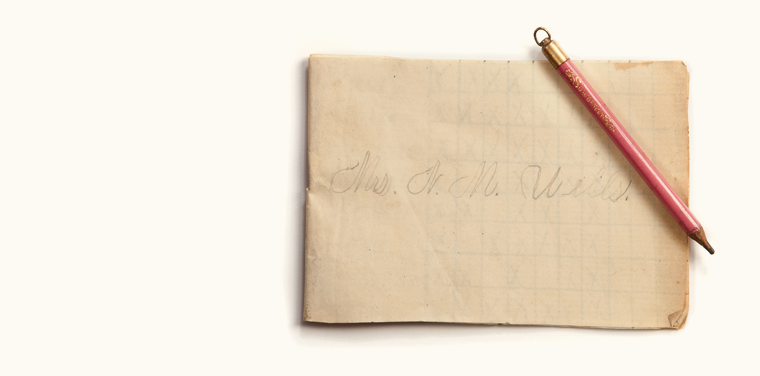 Mrs. W. M. Wells.